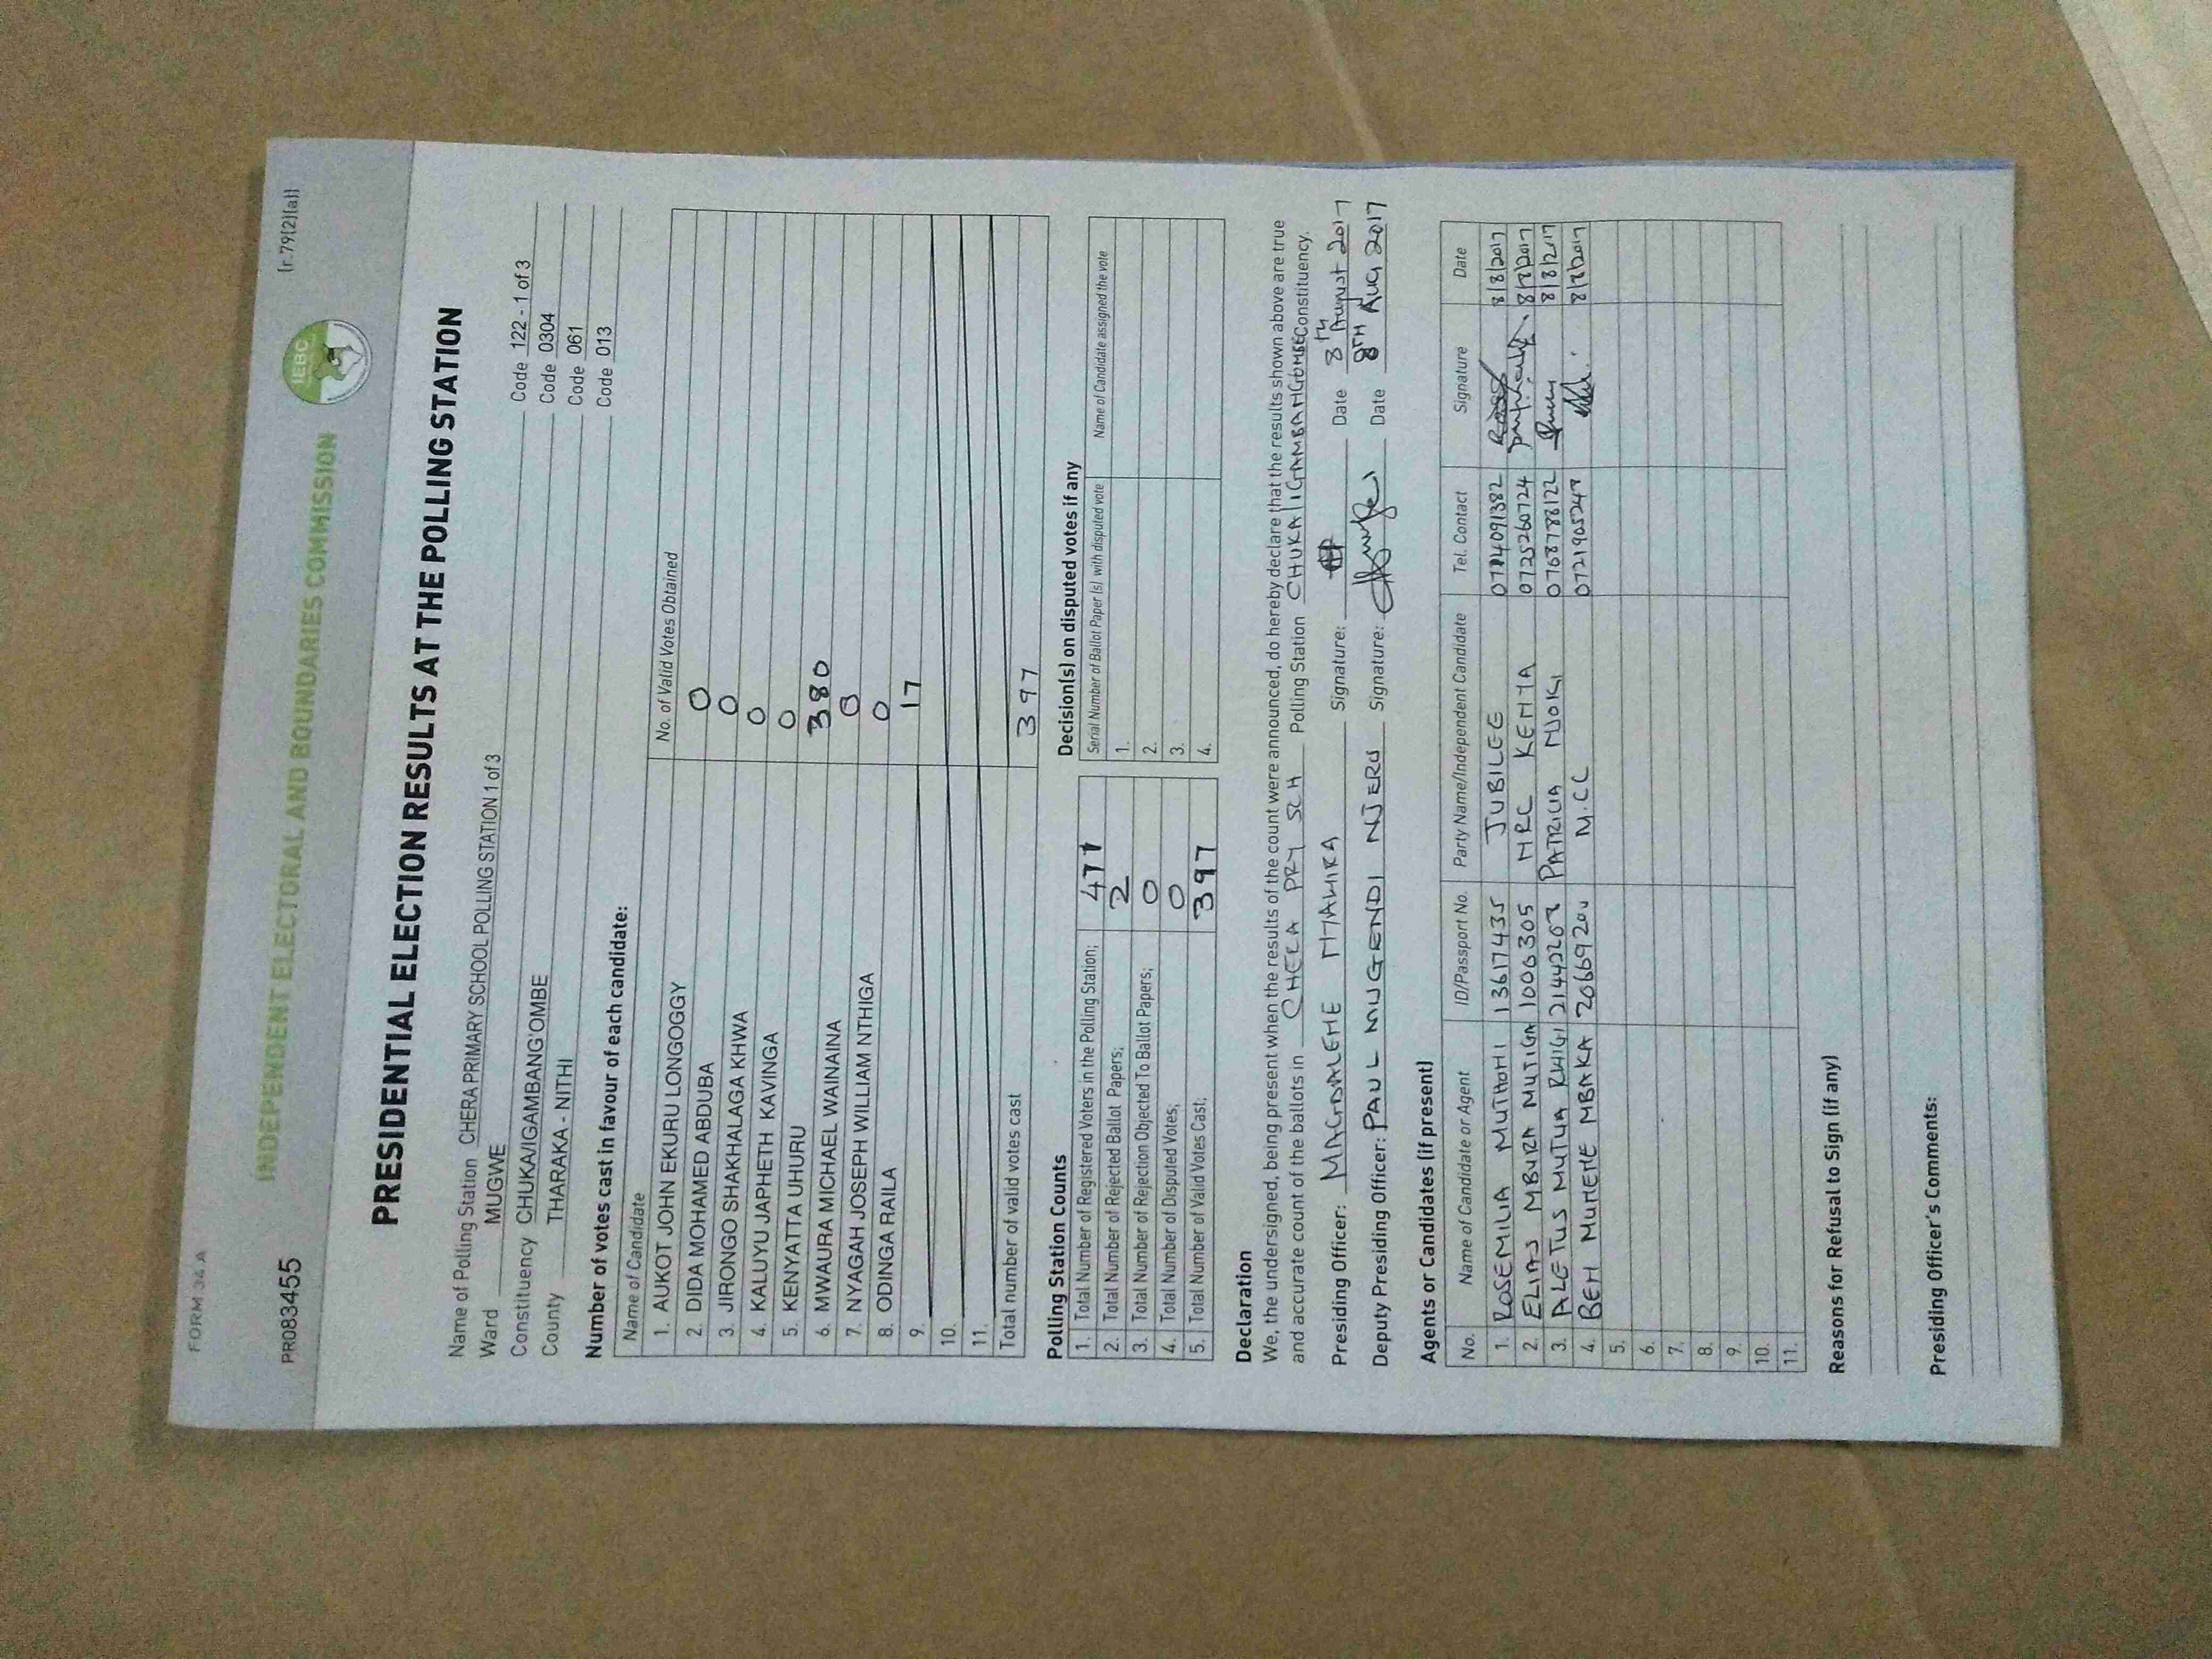 FORM 34 A
[r.79(2)(a)]
INDEPENDENT ELECTORAL AND BOUNDARIES COMMISSION
IEBC
PR083455
PRESIDENTIAL ELECTION RESULTS AT THE POLLING STATION
Name of Polling Station CHERA PRIMARY SCHOOL POLLING STATION 1 of 3 Code 122 - 1 of 3
Ward MUGWE Code 0304
Constituency CHUKA/IGAMBANG'OMBE Code 061
County THARAKA - NITHI Code 013
Number of votes cast in favour of each candidate:
Name of Candidate No. of Valid Votes Obtained
1. AUKOT JOHN EKURU LONGOGGY 0
2. DIDA MOHAMED ABDUBA 0
3. JIRONGO SHAKHALAGA KHWA 0
4. KALUYU JAPHETH KAVINGA 0
5. KENYATTA UHURU 380
6. MWAURA MICHAEL WAINAINA 0
7. NYAGAH JOSEPH WILLIAM NTHIGA 0
8. ODINGA RAILA 17
9.
10.
11.
Total number of valid votes cast 397
Polling Station Counts
1. Total Number of Registered Voters in the Polling Station; 477
2. Total Number of Rejected Ballot Papers; 2
3. Total Number of Rejection Objected To Ballot Papers; 0
4. Total Number of Disputed Votes; 0
5. Total Number of Valid Votes Cast; 397
Decision(s) on disputed votes if any
Serial Number of Ballot Paper (s) with disputed vote Name of Candidate assigned the vote
1.
2.
3.
4.
Declaration
We, the undersigned, being present when the results of the count were announced, do hereby declare that the results shown above are true
and accurate count of the ballots in CHERA PRY SCH Polling Station CHUKA IGAMBANGOMBE Constituency.
Presiding Officer: MAGDALENE Signature: Date 8th August 2017
Deputy Presiding Officer: PAUL MUGENDI NJERU Signature: Date 8TH AUG 2017
Agents or Candidates (if present)
No. Name of Candidate or Agent ID/Passport No. Party Name/Independent Candidate Tel. Contact Signature Date
1. ROSEMILIA MUTHONI 13617435 JUBILEE 8/8/2017
2. ELIAS MBURA MUTIGA 11006305 NRC KENYA 0725260724 8/8/2017
3. ALETUS MUTUA PATRICIA NJOKI 0768788122 8/8/2017
4. BEN MUNENE MBAKA M.CC 8/8/2017
5.
6.
7.
8.
9.
10.
11.
Reasons for Refusal to Sign (if any)
Presiding Officer's Comments: